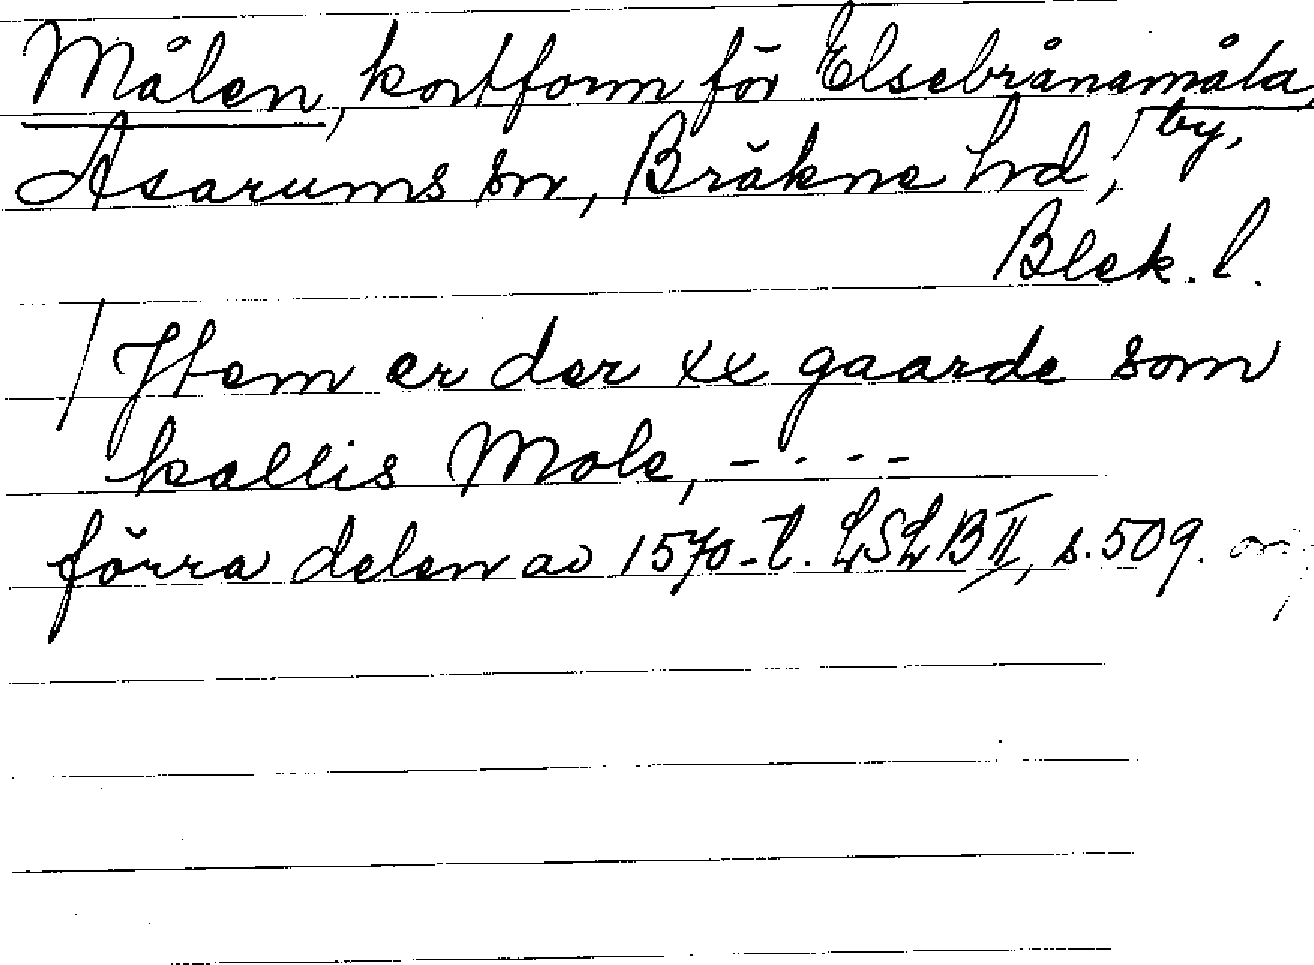 Målen, kortform för Elsebrånamåla,
by,
Asarums sn, Bräkne hd,
Blek. l.
Jtem er der xx gaarde som
kallis Mole, - . - -
förra delen av 1570-t. LSLB II, s. 509.